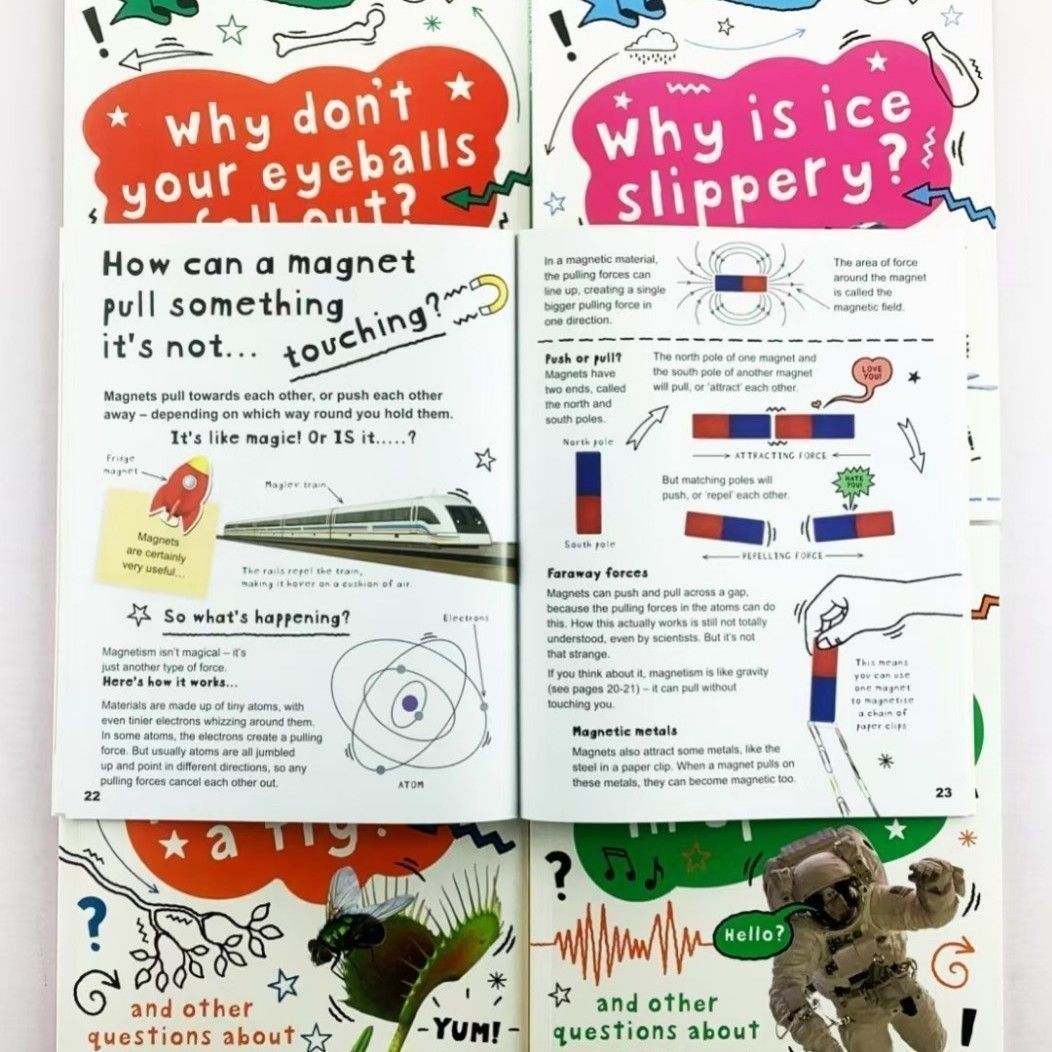 !
why don't
your eyeballs
fall out?
!
why is ice
slippery?
How can a magnet
pull something
it's not... touching?
Magnets pull towards each other, or push each other
away – depending on which way round you hold them.
It's like magic! Or IS it.....?
Fridge
magnet
Maglev train
Magnets
are certainly
very useful...
The rails repel the train,
making it hover on a cushion of air.
So what's happening?
Electrons
Magnetism isn't magical – it's
just another type of force.
Here's how it works...
Materials are made up of tiny atoms, with
even tinier electrons whizzing around them.
In some atoms, the electrons create a pulling
force. But usually atoms are all jumbled
up and point in different directions, so any
pulling forces cancel each other out.
ATOM
22
In a magnetic material,
the pulling forces can
line up, creating a single
bigger pulling force in
one direction.
The area of force
around the magnet
is called the
magnetic field.
Push or pull?
Magnets have
two ends, called
the north and
south poles.
North pole
South pole
The north pole of one magnet and
the south pole of another magnet
will pull, or 'attract' each other.
LOVE
YOU!
ATTRACTING FORCE
But matching poles will
push, or 'repel' each other.
HATE
YOU!
REPELLING FORCE
Faraway forces
Magnets can push and pull across a gap,
because the pulling forces in the atoms can do
this. How this actually works is still not totally
understood, even by scientists. But it's not
that strange.
If you think about it, magnetism is like gravity
(see pages 20-21) – it can pull without
touching you.
Magnetic metals
Magnets also attract some metals, like the
steel in a paper clip. When a magnet pulls on
these metals, they can become magnetic too.
This means
you can use
one magnet
to magnetise
a chain of
paper clips
23
a fly?
?
and other
questions about
-YUM!-
?
Hello?
and other
questions about
!